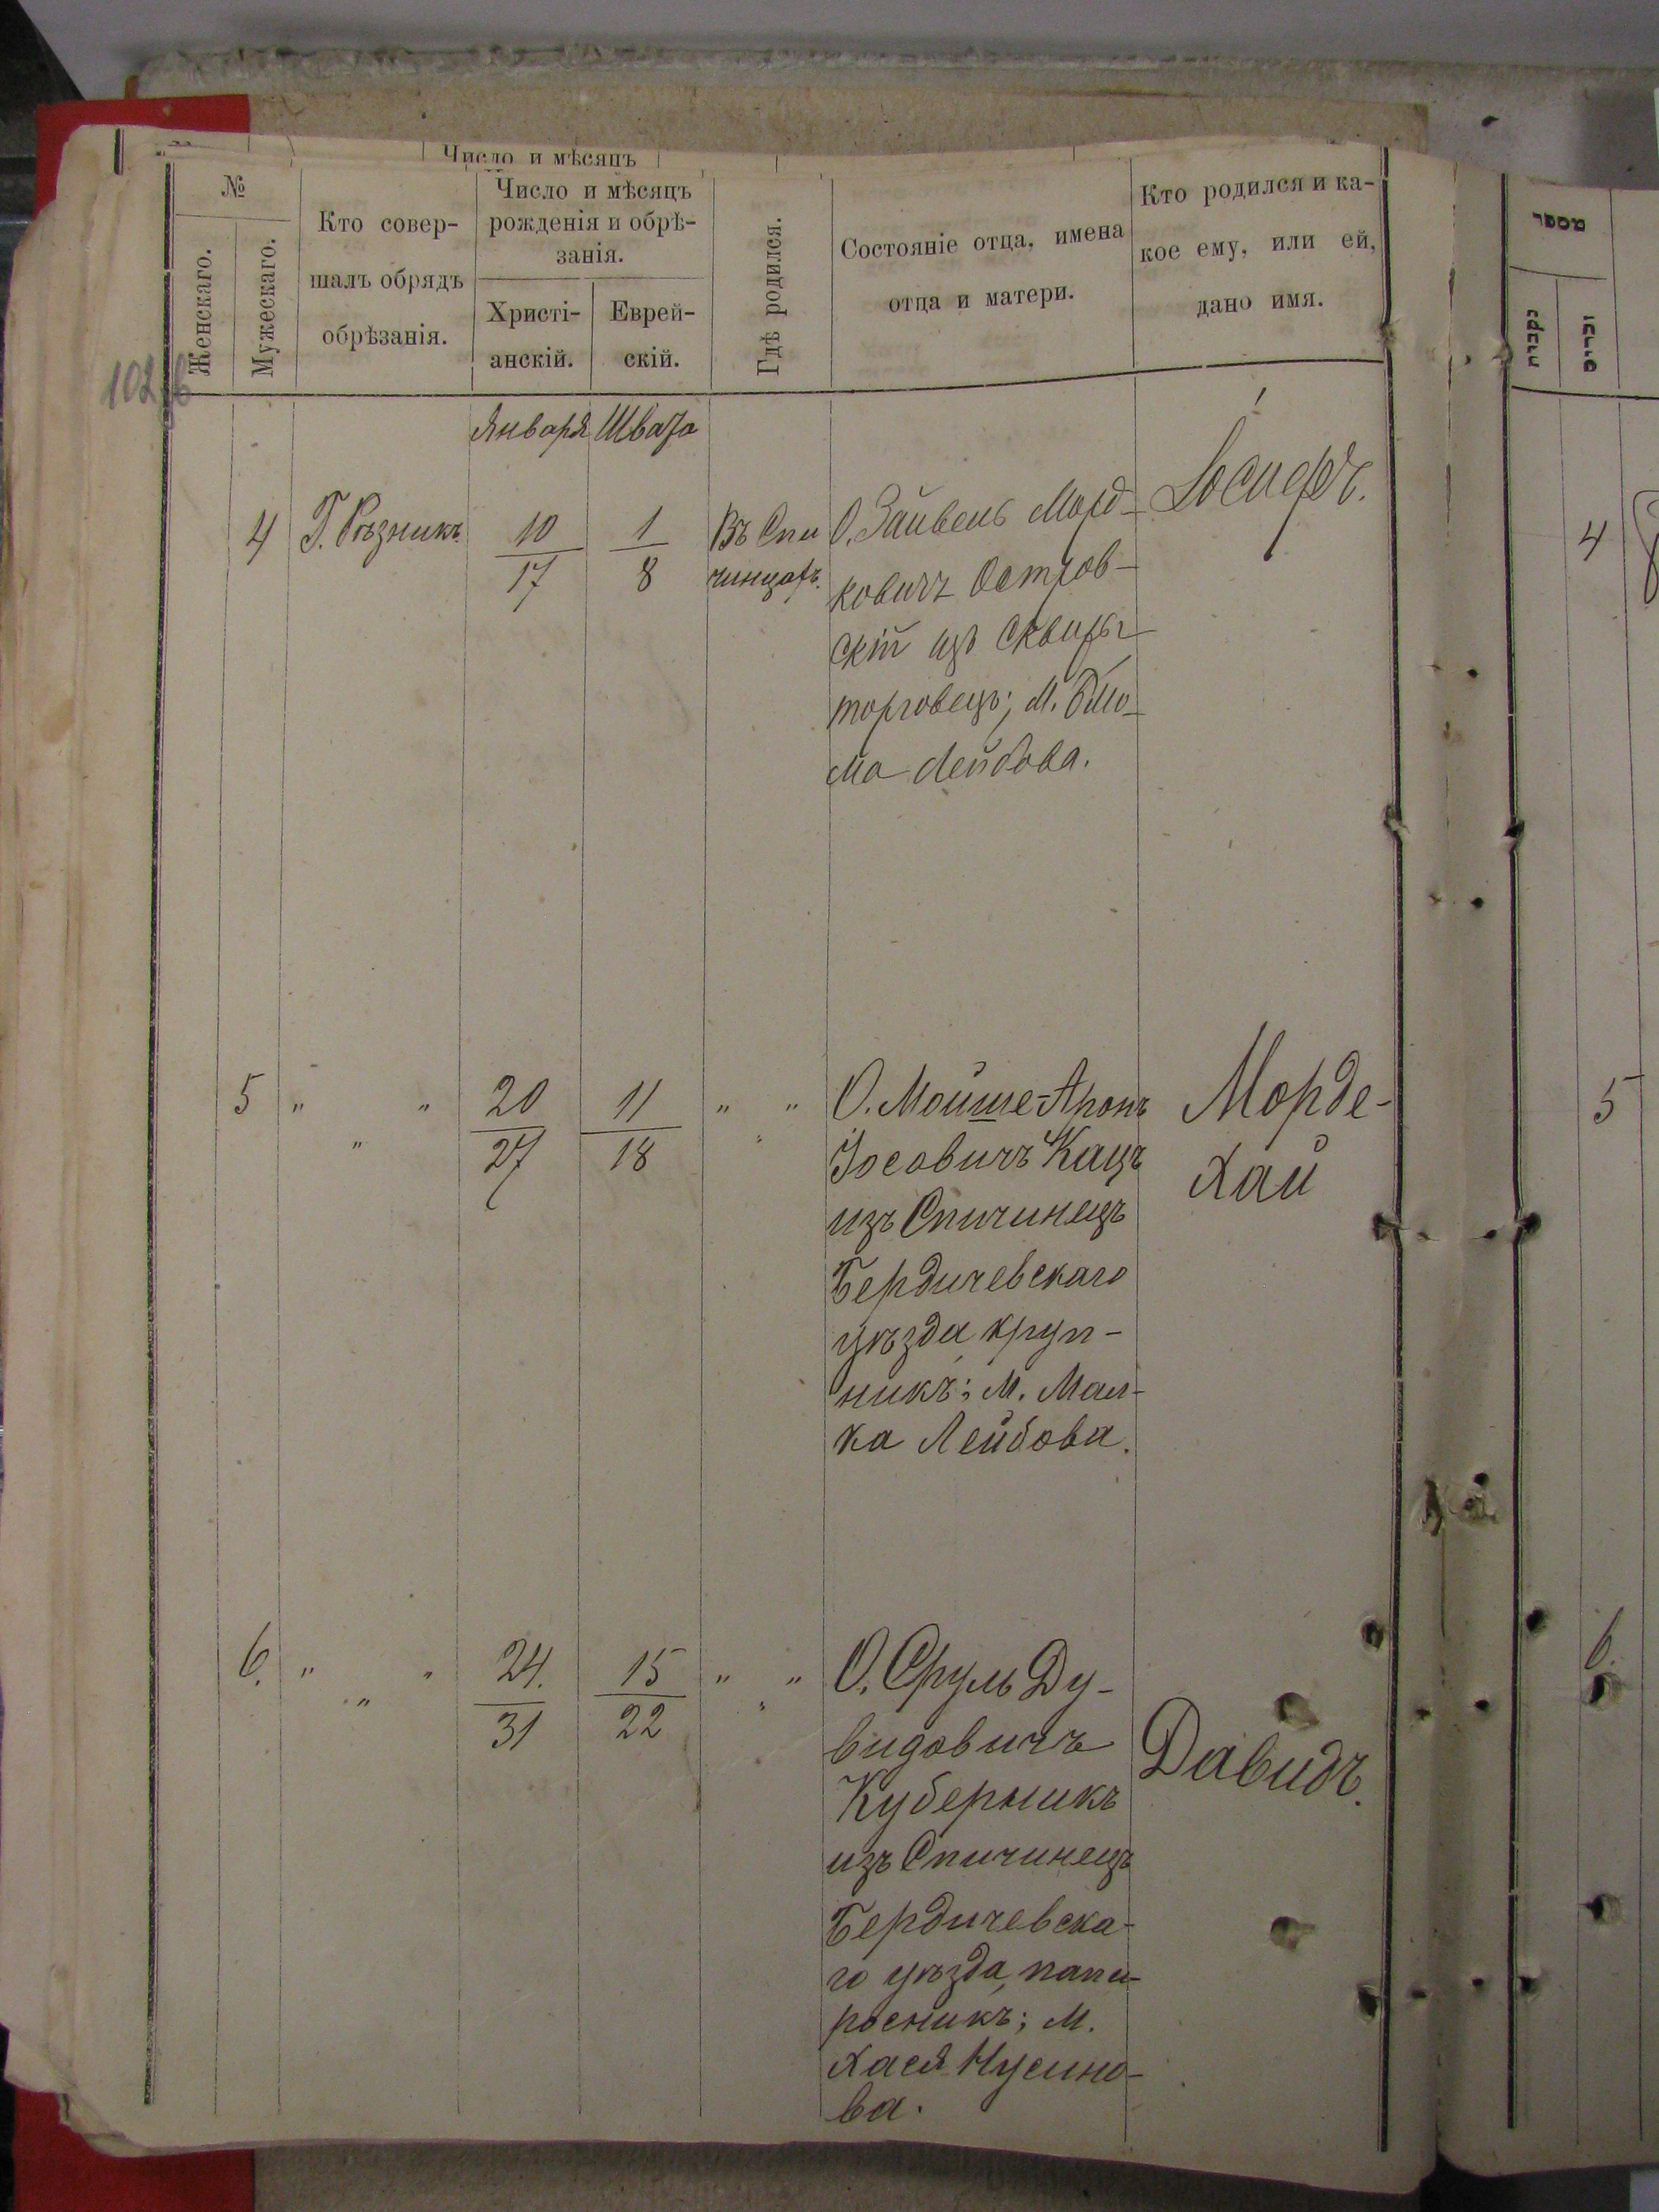 Число и мѣсяцъ
№
Женскаго.
Мужескаго.
Кто совер-
шалъ обрядъ
обрѣзанія.
Число и мѣсяцъ
рожденія и обрѣ-
занія.
Христі-
анскій.
Еврей-
скій.
Гдѣ родился.
Состояніе отца, имена
отца и матери.
Кто родился и ка-
кое ему, или ей,
дано имя.
מספר
נקבות
זכרים
102
Января Швата
4 Г. Рѣзникъ 10/17 1/8 Въ Спи
чинцахъ.
О. Зайвель Морд-
ковичъ Остров-
скій изъ Сквиры
торговецъ; М.
ма Лейбова.
Іосифъ.
4
5 " " " 20/27 11/18 " " "
О. Мойше-Аронъ
Іосовичъ Кацъ
изъ Спичинецъ
Бердичевскаго
уѣзда, круп-
никъ; М. Мал-
ка Лейбова.
Морде-
хай
5
6. " " " 24./31 15/22 " " "
О. Сруль Ду-
видовичъ
Куберникъ
изъ Спичинецъ
Бердичевска-
го уѣзда, папи-
росникъ; М.
Хася Нусино-
ва.
Давидъ.
6.